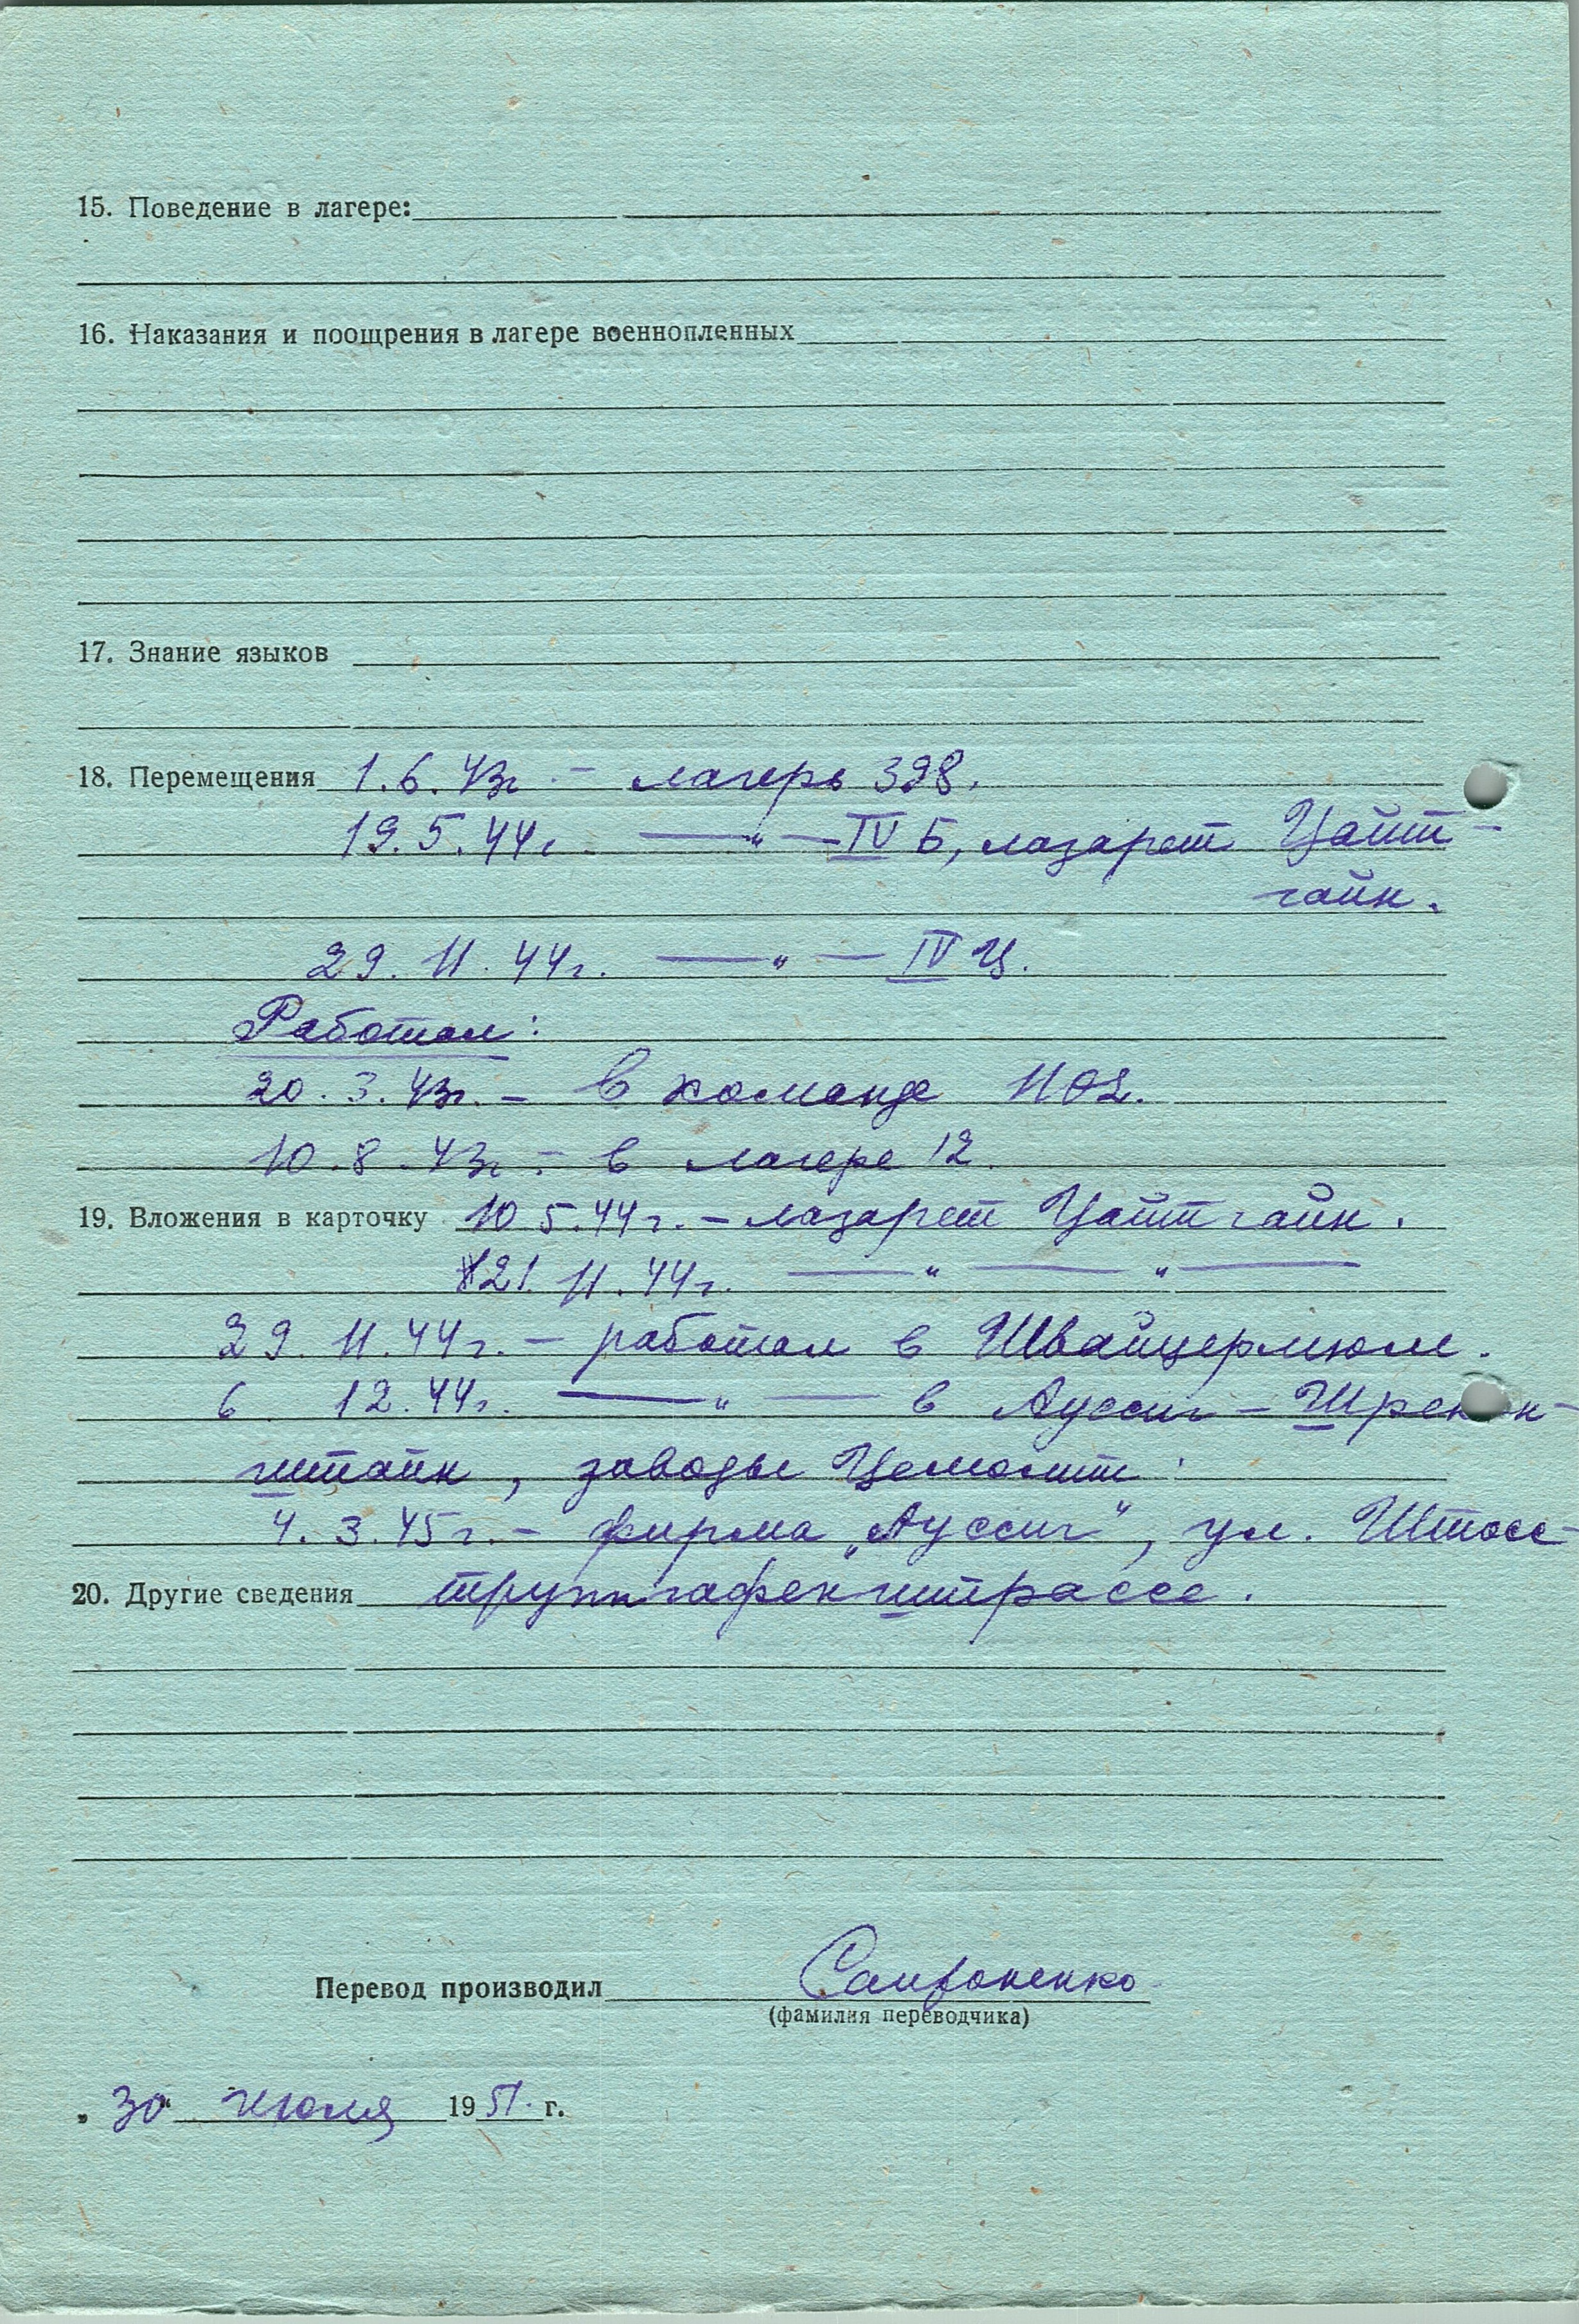 15. Поведение в лагере:
16. Наказания и поощрения в лагере военнопленных
17. Знание языков
18. Перемещения 1.6.43г. – лагерь 398.
19.5.44г. —„— IV Б, лазарет Цайт-
гайн.
29.11.44г. —„— IV Ц.
Работал:
20.3.43г. – в команде
10.8.43г. – в лагере 12.
19. Вложения в карточку 10 5.44г. – лазарет Цайтгайн.
21.11.44г. —„— —„—
29.11.44г. – работал в Швайцермюле.
6 12.44г. —„— в Ауссиг – Шрекен-
штайн, заводы Цемолит.
4.3.45г. – фирма „Ауссиг“, ул. Штосс-
20. Другие сведения труппгафенштрассе.
Перевод производил
(фамилия переводчика)
„30“ июля 1951 г.